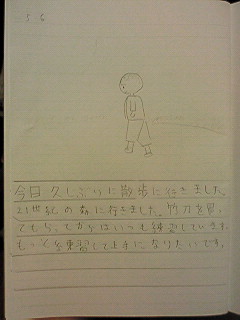 5 6
今日久しぶりに散歩に行きました。
21世紀の森に行きました。竹刀を買っ
てもらってからはいつも練習しています。
もっと練習して上手になりたいです。